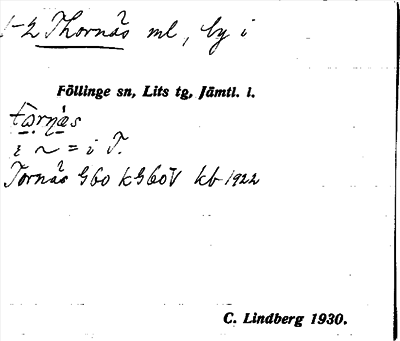 1-2 Thornås ml, by i
Föllinge sn, Lits tg, Jämtl. l.
tɷrṇås
i ~ = i T.
Tornås Gbo kGboV kb 1922
C. Lindberg 1930.